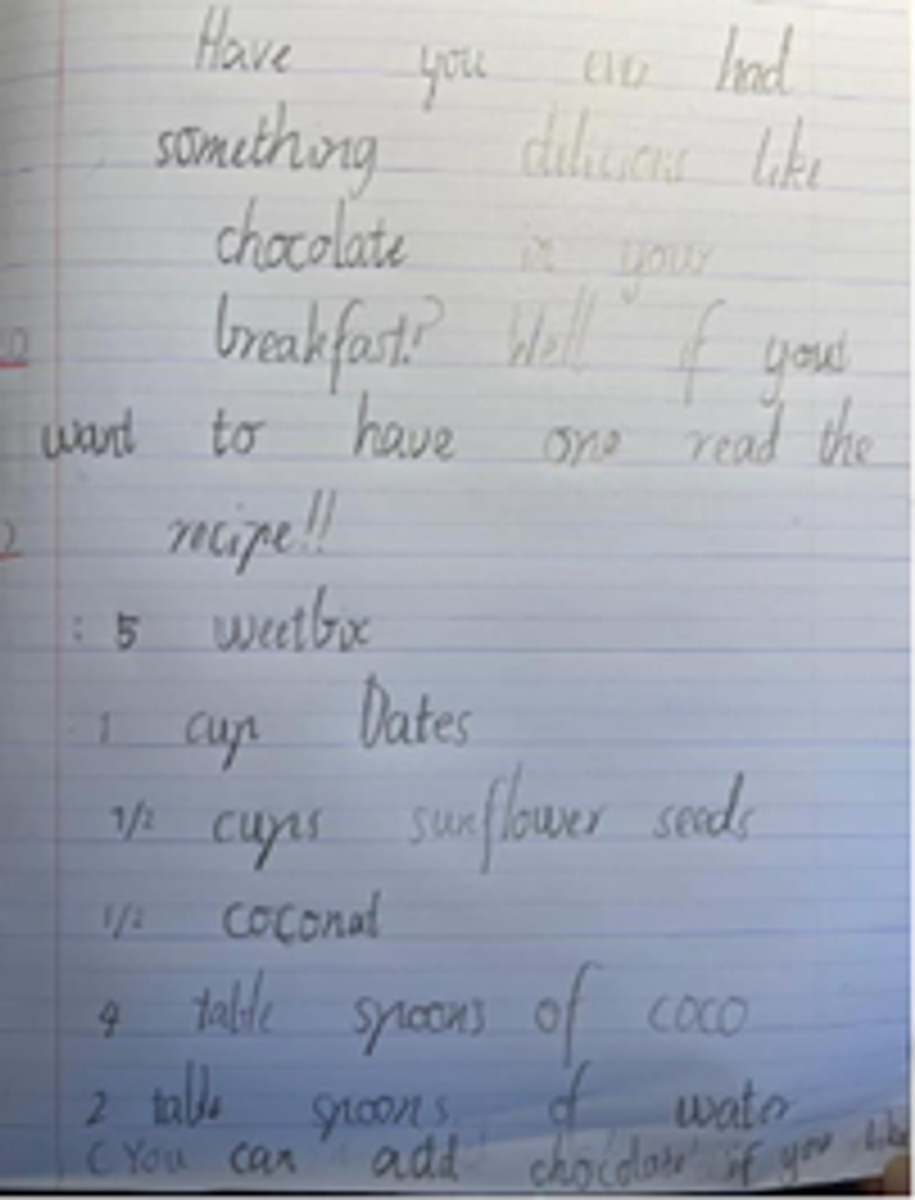 Have you ever had
something delicious like
chocolate in your
breakfast? Well if you
want to have one read the
recipe!!
: 5 weetbix
1 cup Dates
1/2 cups sunflower seeds
1/2 coconut
4 table spoons of coco
2 table spoons of water
(You can add chocolate if you like